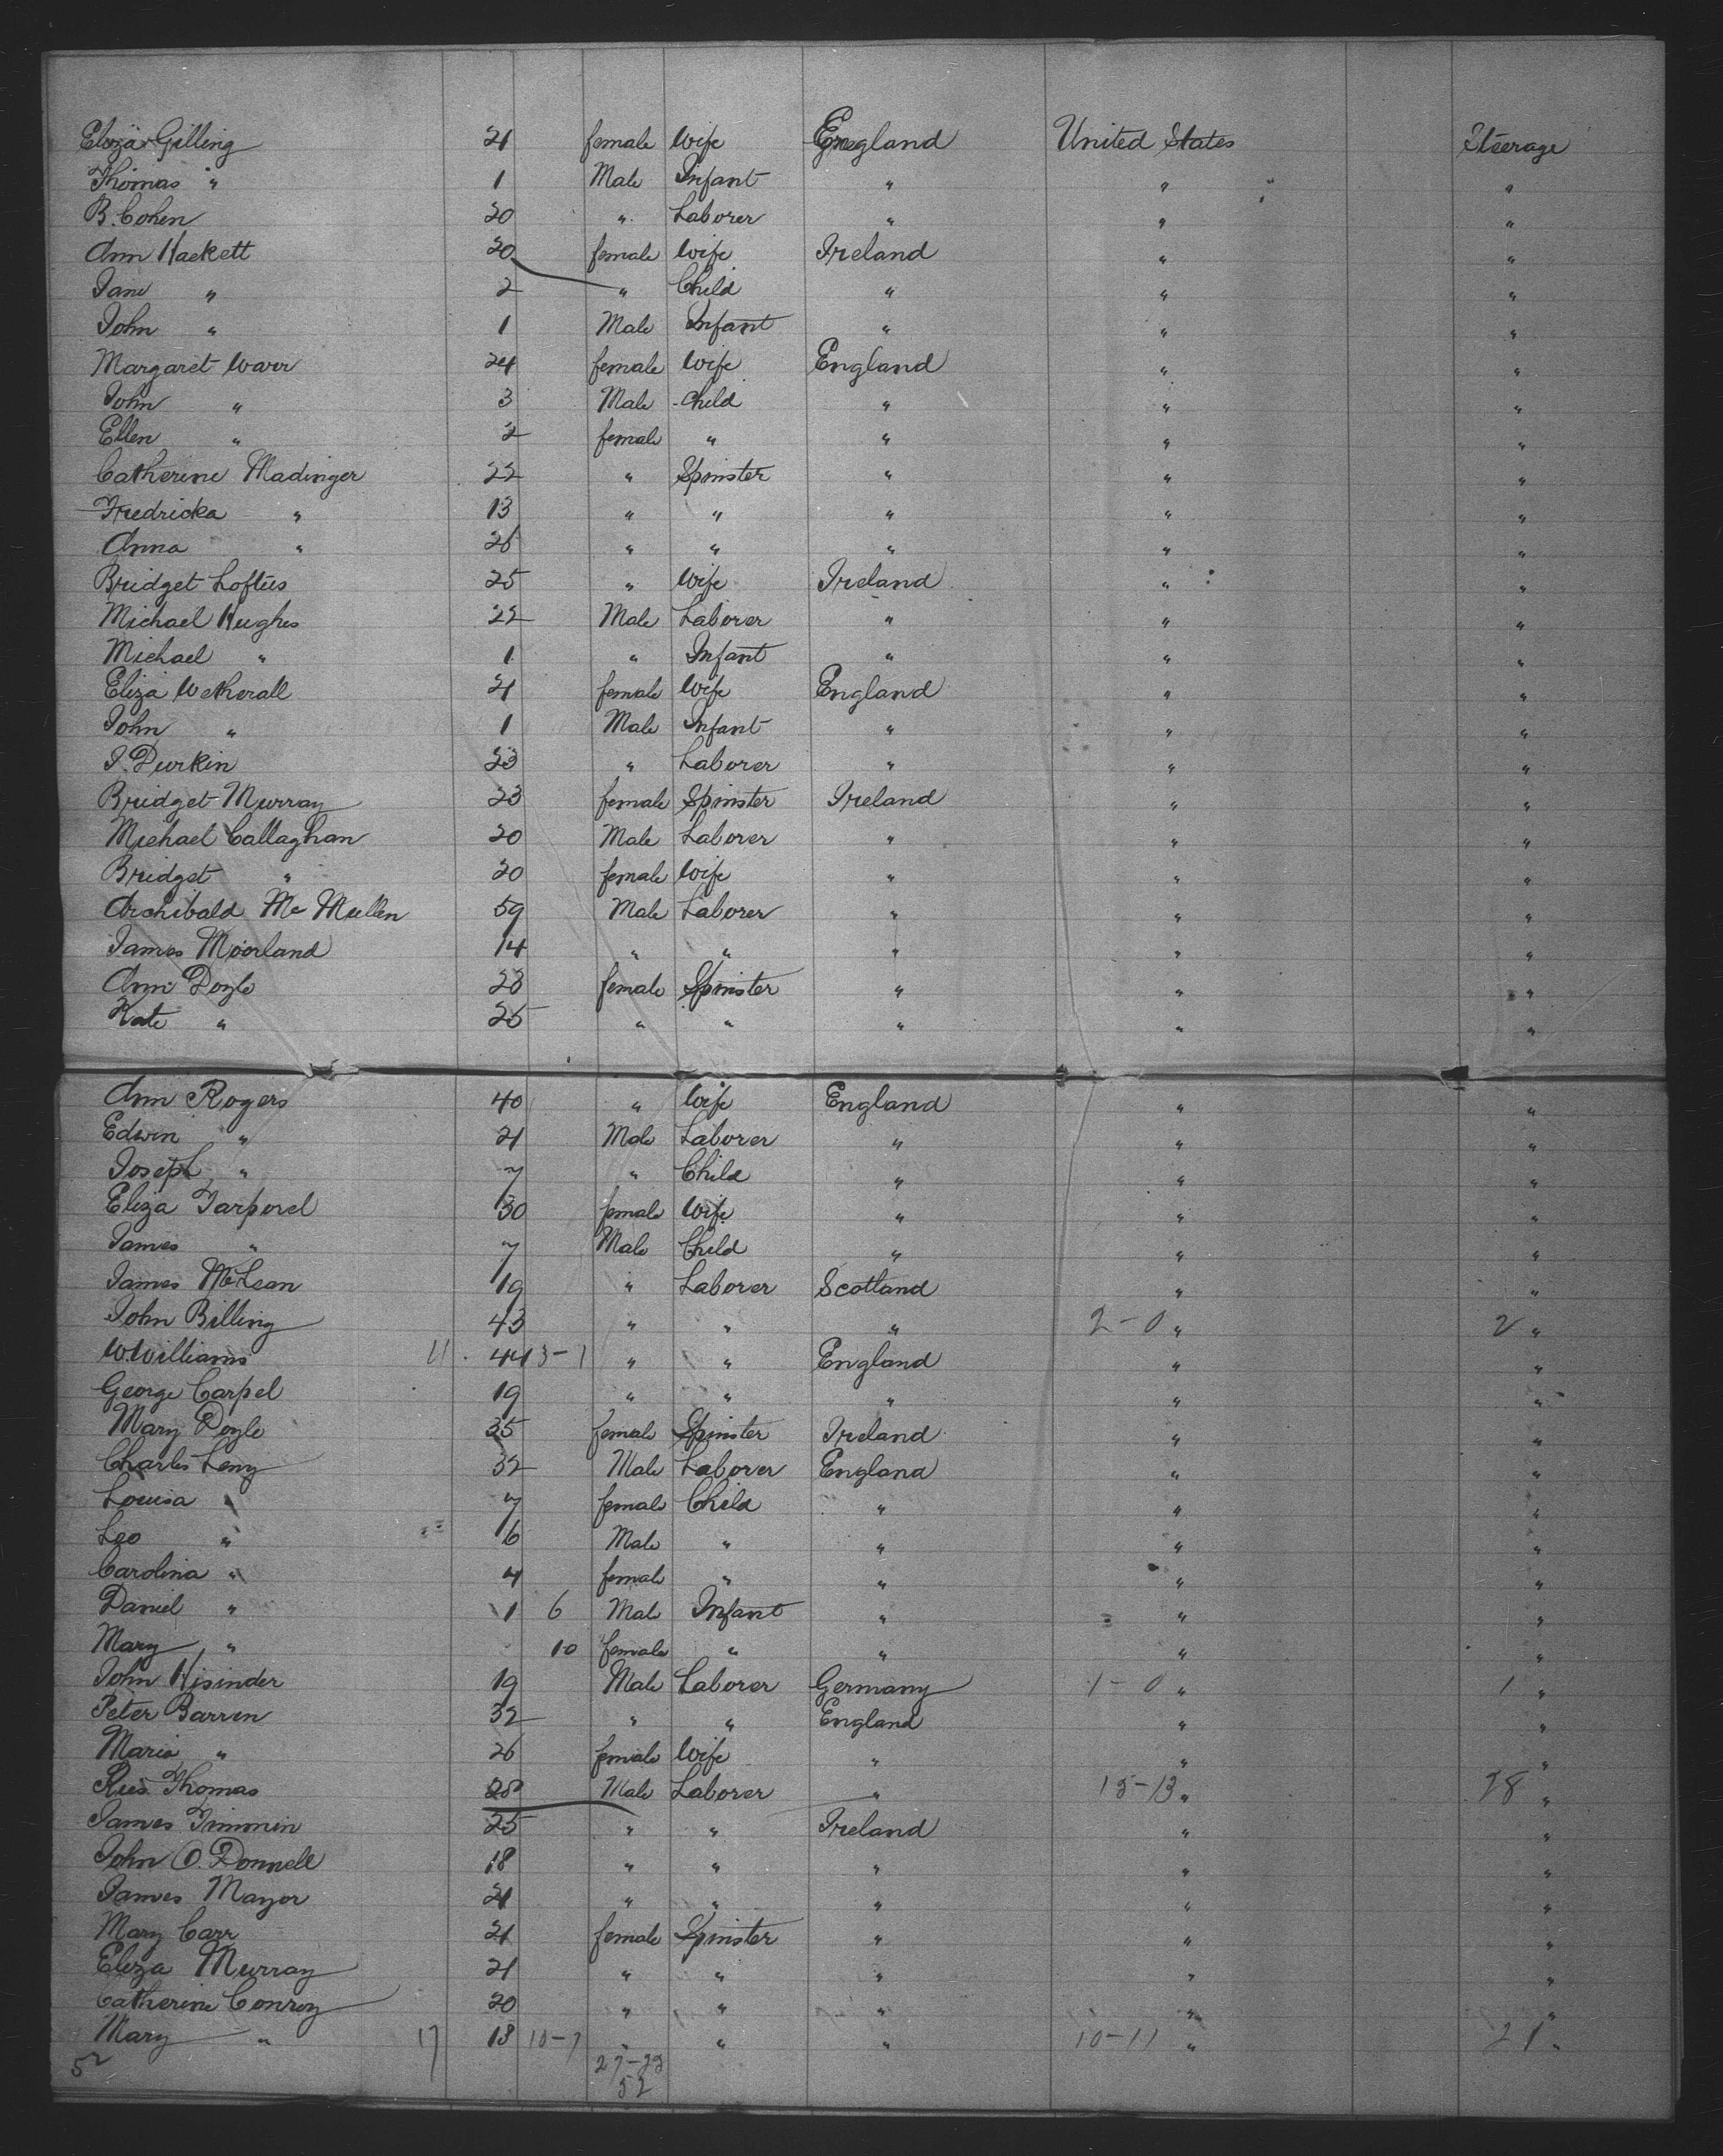 Eliza Gilling 21 female Wife England United States Steerage
Thomas " 1 Male Infant " " "
B. Cohen 20 " Laborer " " "
Ann Hackett 20 female Wife Ireland " "
Jane " 2 " Child " " "
John " 1 Male Infant " " "
Margaret Warr 24 female Wife England " "
John " 3 Male Child " " "
Ellen " 2 female " " " "
Catherine Madinger 22 " Spinster " " "
Fredricka " 13 " " " " "
Anna " 26 " " " " "
Bridget Loftus 25 " Wife Ireland " "
Michael Hughes 22 Male Laborer " " "
Michael " 1 " Infant " " "
Eliza Wetherall 21 female Wife England " "
John " 1 Male Infant " " "
J. Durkin 23 " Laborer " " "
Bridget Murray 23 female Spinster Ireland " "
Michael Callaghan 20 Male Laborer " " "
Bridget " 20 female Wife " " "
Archibald Mc Mullen 59 Male Laborer " " "
James Moorland 14 " " " " "
Ann Doyle 28 female Spinster " " "
Kate " 25 " " " " "
Ann Rogers 40 " Wife England " "
Edwin " 21 Male Laborer " " "
Joseph " 7 " Child " " "
Eliza Tarperel 30 female Wife " " "
James " 7 Male Child " " "
James McLean 19 " Laborer Scotland " "
John Billing 43 " " " 2-0 " 2 "
W. Williams 11 44 13-1 " " England " "
George Carpel 19 " " " " "
Mary Doyle 35 female Spinster Ireland " "
Charles Leny 32 Male Laborer England " "
Louisa " 7 female Child " " "
Leo " 6 Male " " " "
Carolina " 4 female " " " "
Daniel " 1 6 Male Infant " " "
Mary " 10 female " " " "
John Hisinder 19 Male Laborer Germany 1-0 " 1 "
Peter Barren 32 " " England " "
Maria " 26 female Wife " " "
Rees Thomas 28 Male Laborer " 15-13 " 28 "
James Timmin 25 " " Ireland " "
John O. Donnell 18 " " " " "
James Mayor 21 " " " " "
Mary Carr 21 female Spinster " " "
Eliza Murray 21 " " " " "
Catherine Conroy 20 " " " " "
Mary " 17 18 10-7 " " " 10-11 " 21 "
52 27-25
52